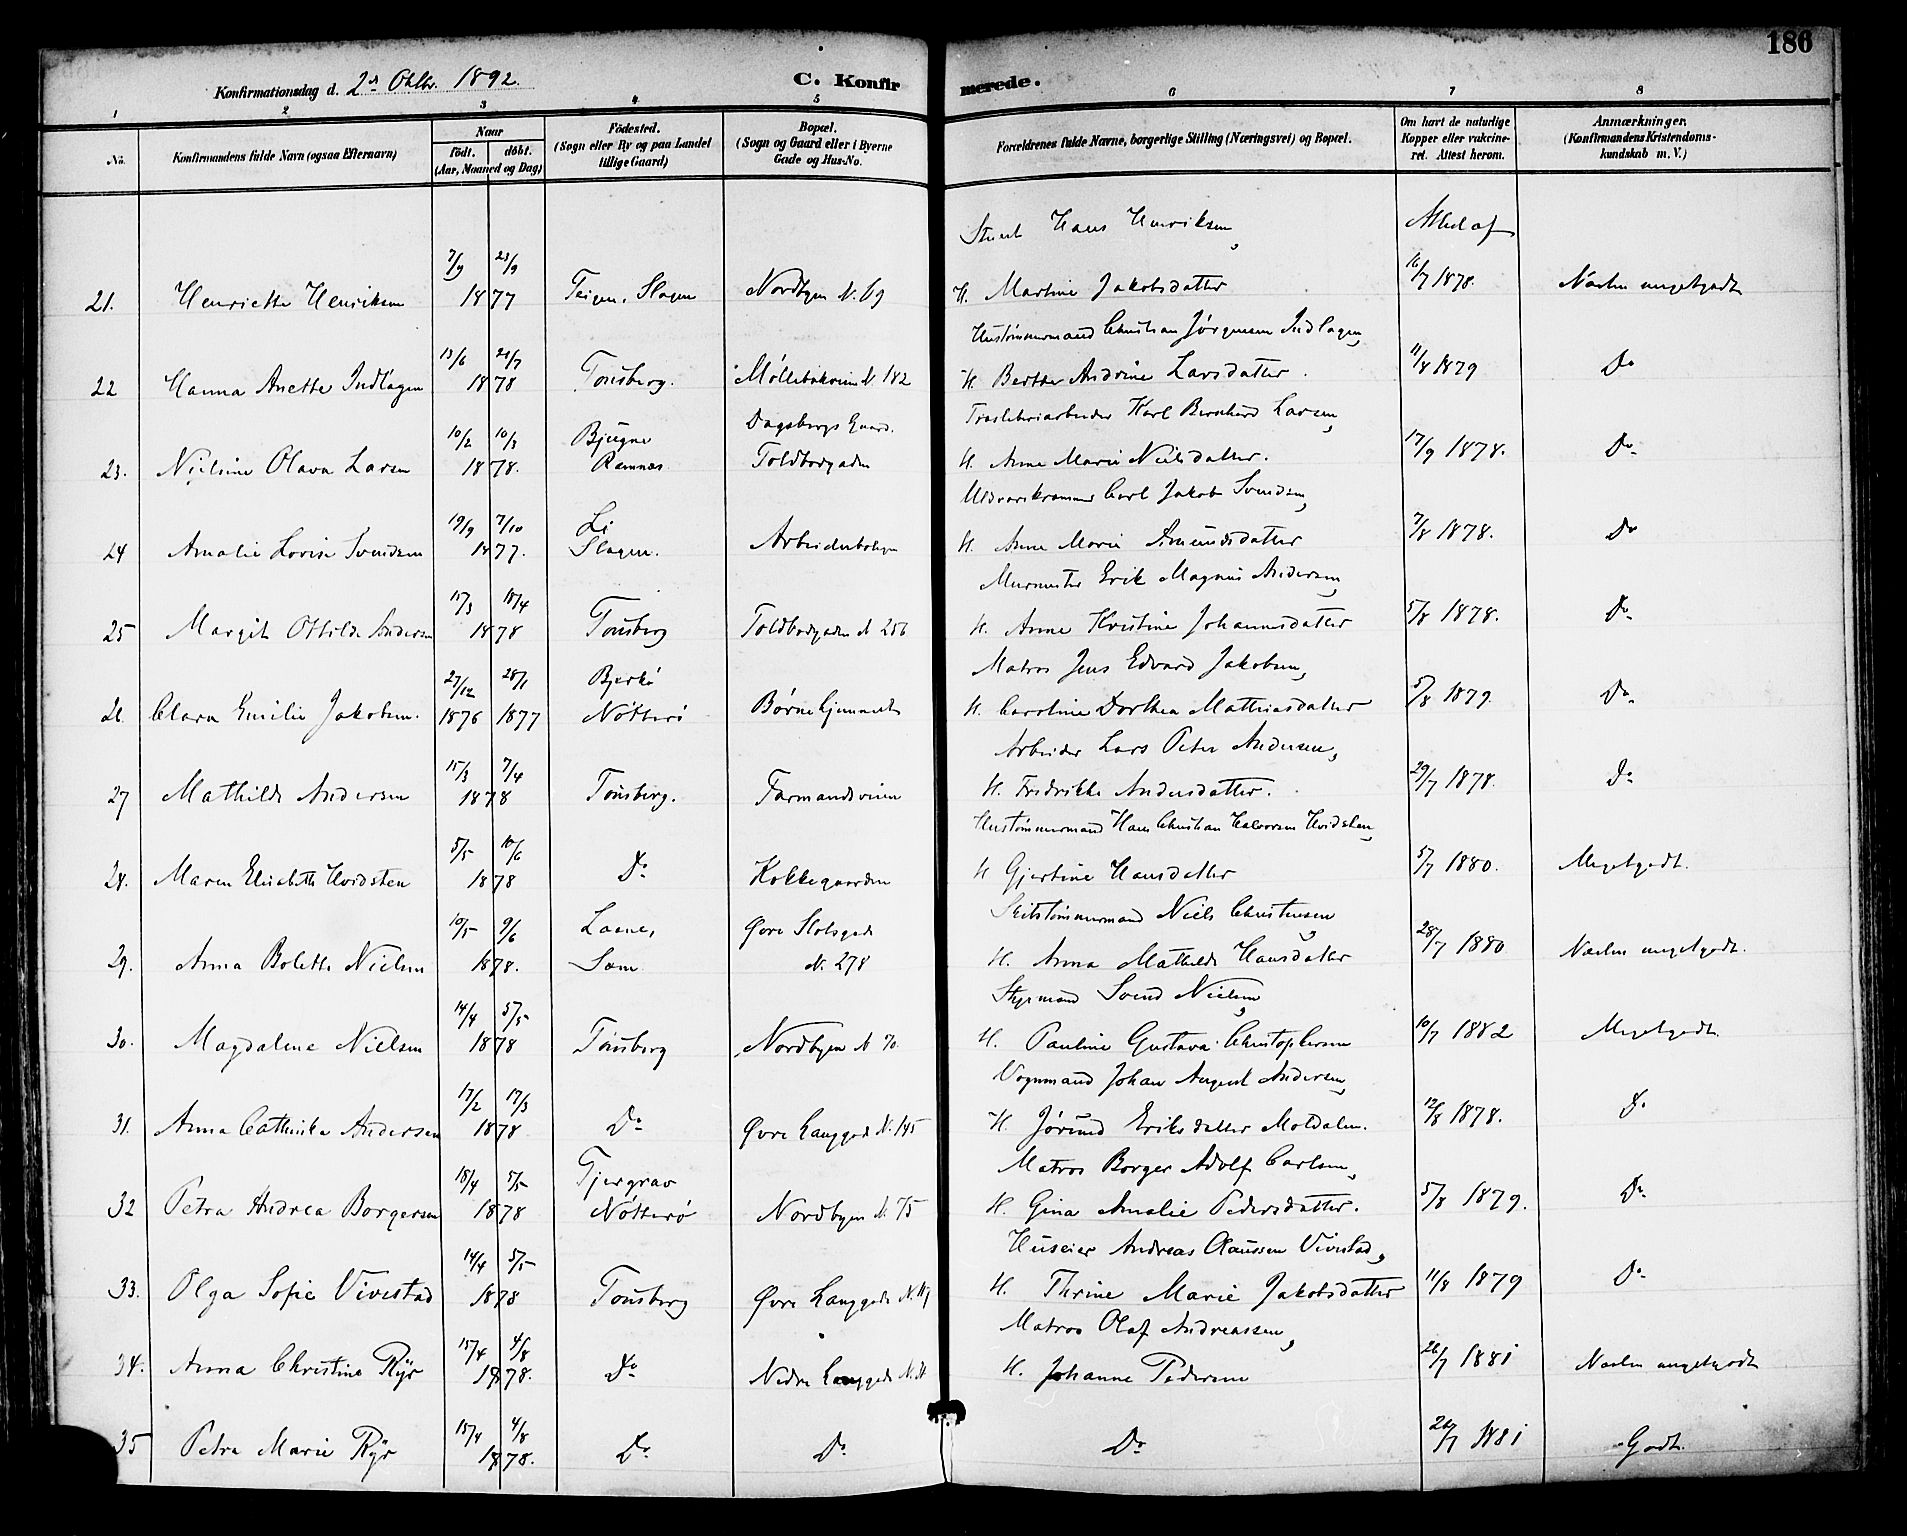 186
Konfirmationsdag d. 2d Oktbr. 1892.
C. Konfirmerede.
1 2 3 4 5 6 7 8
No. Konfirmandens fulde Navn (ogsaa Efternavn) Naar født. døbt. (Aar, Maaned og Dag) Födested. (Sogn eller By og paa Landet tillige Gaard) Bopæl. (Sogn og Gaard eller i Byerne Gade og Hus-No. Forældrenes fulde Navne, borgerlige Stilling (Næringsvei) og Bopæl. Om havt de naturlige Kopper eller vakcineret. Attest herom. Anmærkninger. (Konfirmandens Kristendomskundskab m. V.)
Hans Henriksen, Attest af
7/9 23/9 16/7 1878.
21. Henriette Henriksen 1877 Teigen, Slagen Nordbyen N. 69 H. Martine Jakobsdatter Næsten megetgodt
Hustømmermand Christian Jørgensen Indlagen,
13/6 21/7
22 Hanna Anette Indlagen 1878 Tønsberg. Møllebakveien N 182 H. Berthe Andrine Larsdatter. 11/8 1879 Do
Karl Bernhard Larsen,
10/2 10/3 Bjugne Dagsbergs Gaard.
23. Nielsine Olava Larsen 1878. Ramnæs Toldbodgaden H. Anne Marie Nielsdatter. 17/9 1878. Do
Uldvarekræmmer Carl Jakob Svendsen,
19/9 7/10 Li
24 Amalie Lovise Svendsen 1877. Slagen. Arbeiderboligen H. Anne Marie Amundsdatter 7/8 1878. Do
Murmester Erik Magnus Andersen,
15/3 18/4
25 Margit Ottilde Andersen 1878 Tønsberg Toldbodgaden N 256 H. Anne Kristine Johannesdatter 5/8 1878. Do
Matros Jens Edvard Jakobsen,
27/12 28/1 Bjerkø
26. Clara Emilie Jakobsen. 1876 1877 Nøtterø Børnehjemmet H. Caroline Dorthea Mathiasdatter 5/8 1879. Do
Arbeider Lars Peter Andersen,
15/3 7/4
27 Mathilde Andersen 1878 Tønsberg. Farmandsveien H. Fredrikke Andersdatter. 29/7 1878. Do
Hustømmermand Hans Christian Halvorsen Hvidsten,
5/5 10/6
28. Maren Elisabeth Hvidsten 1878 Do Kokkegaarden H Gjertine Hansdatter 5/7 1880. Megetgodt.
Skibstømmermand Niels Christensen,
10/5 9/6 Øvre Slotsgade
29. Anna Bolette Nielsen 1878. Sæm N. 278 H. Anna Mathilde Hansdatter 28/7 1880 Næsten megetgodt.
Styrmand Svend Nielsen,
14/4 5/5
30. Magdalene Nielsen 1878 Tønsberg Nordbyen N 70. H. Pauline Gustava Christophersen 10/7 1882 Megetgodt.
Vognmand Johan August Andersen,
17/2 17/3
31. Anna Cathinka Andersen 1878 Do Øvre Langgade N. 145 H. Jørund Eriksdatter Moldalen. 12/8 1878. Do
Matros Borger Adolf Carlsen,
18/4 5/5 Tjergrav
32 Petra Andrea Borgersen 1878 Nøtterø Nordbyen N. 75 H. Gina Amalie Pedersdatter. 5/8 1879. Do
Huseier Andreas Olaussen Vivestad,
14/4 5/5
33. Olga Sofie Vivestad 1878 Tønsberg Øvre Langgade H. Thrine Marie Jakobsdatter 11/8 1879 Do
Matros Olaf Andreassen,
15/4 4/8
34. Anna Christine Ryr 1878. Do Nedre Langgade H. Johanne Pedersen 26/7 1881 Næsten megetgodt
15/4 4/8
35 Petra Marie Ryr 1878. Do Do Do 26/7 1881 Godt.